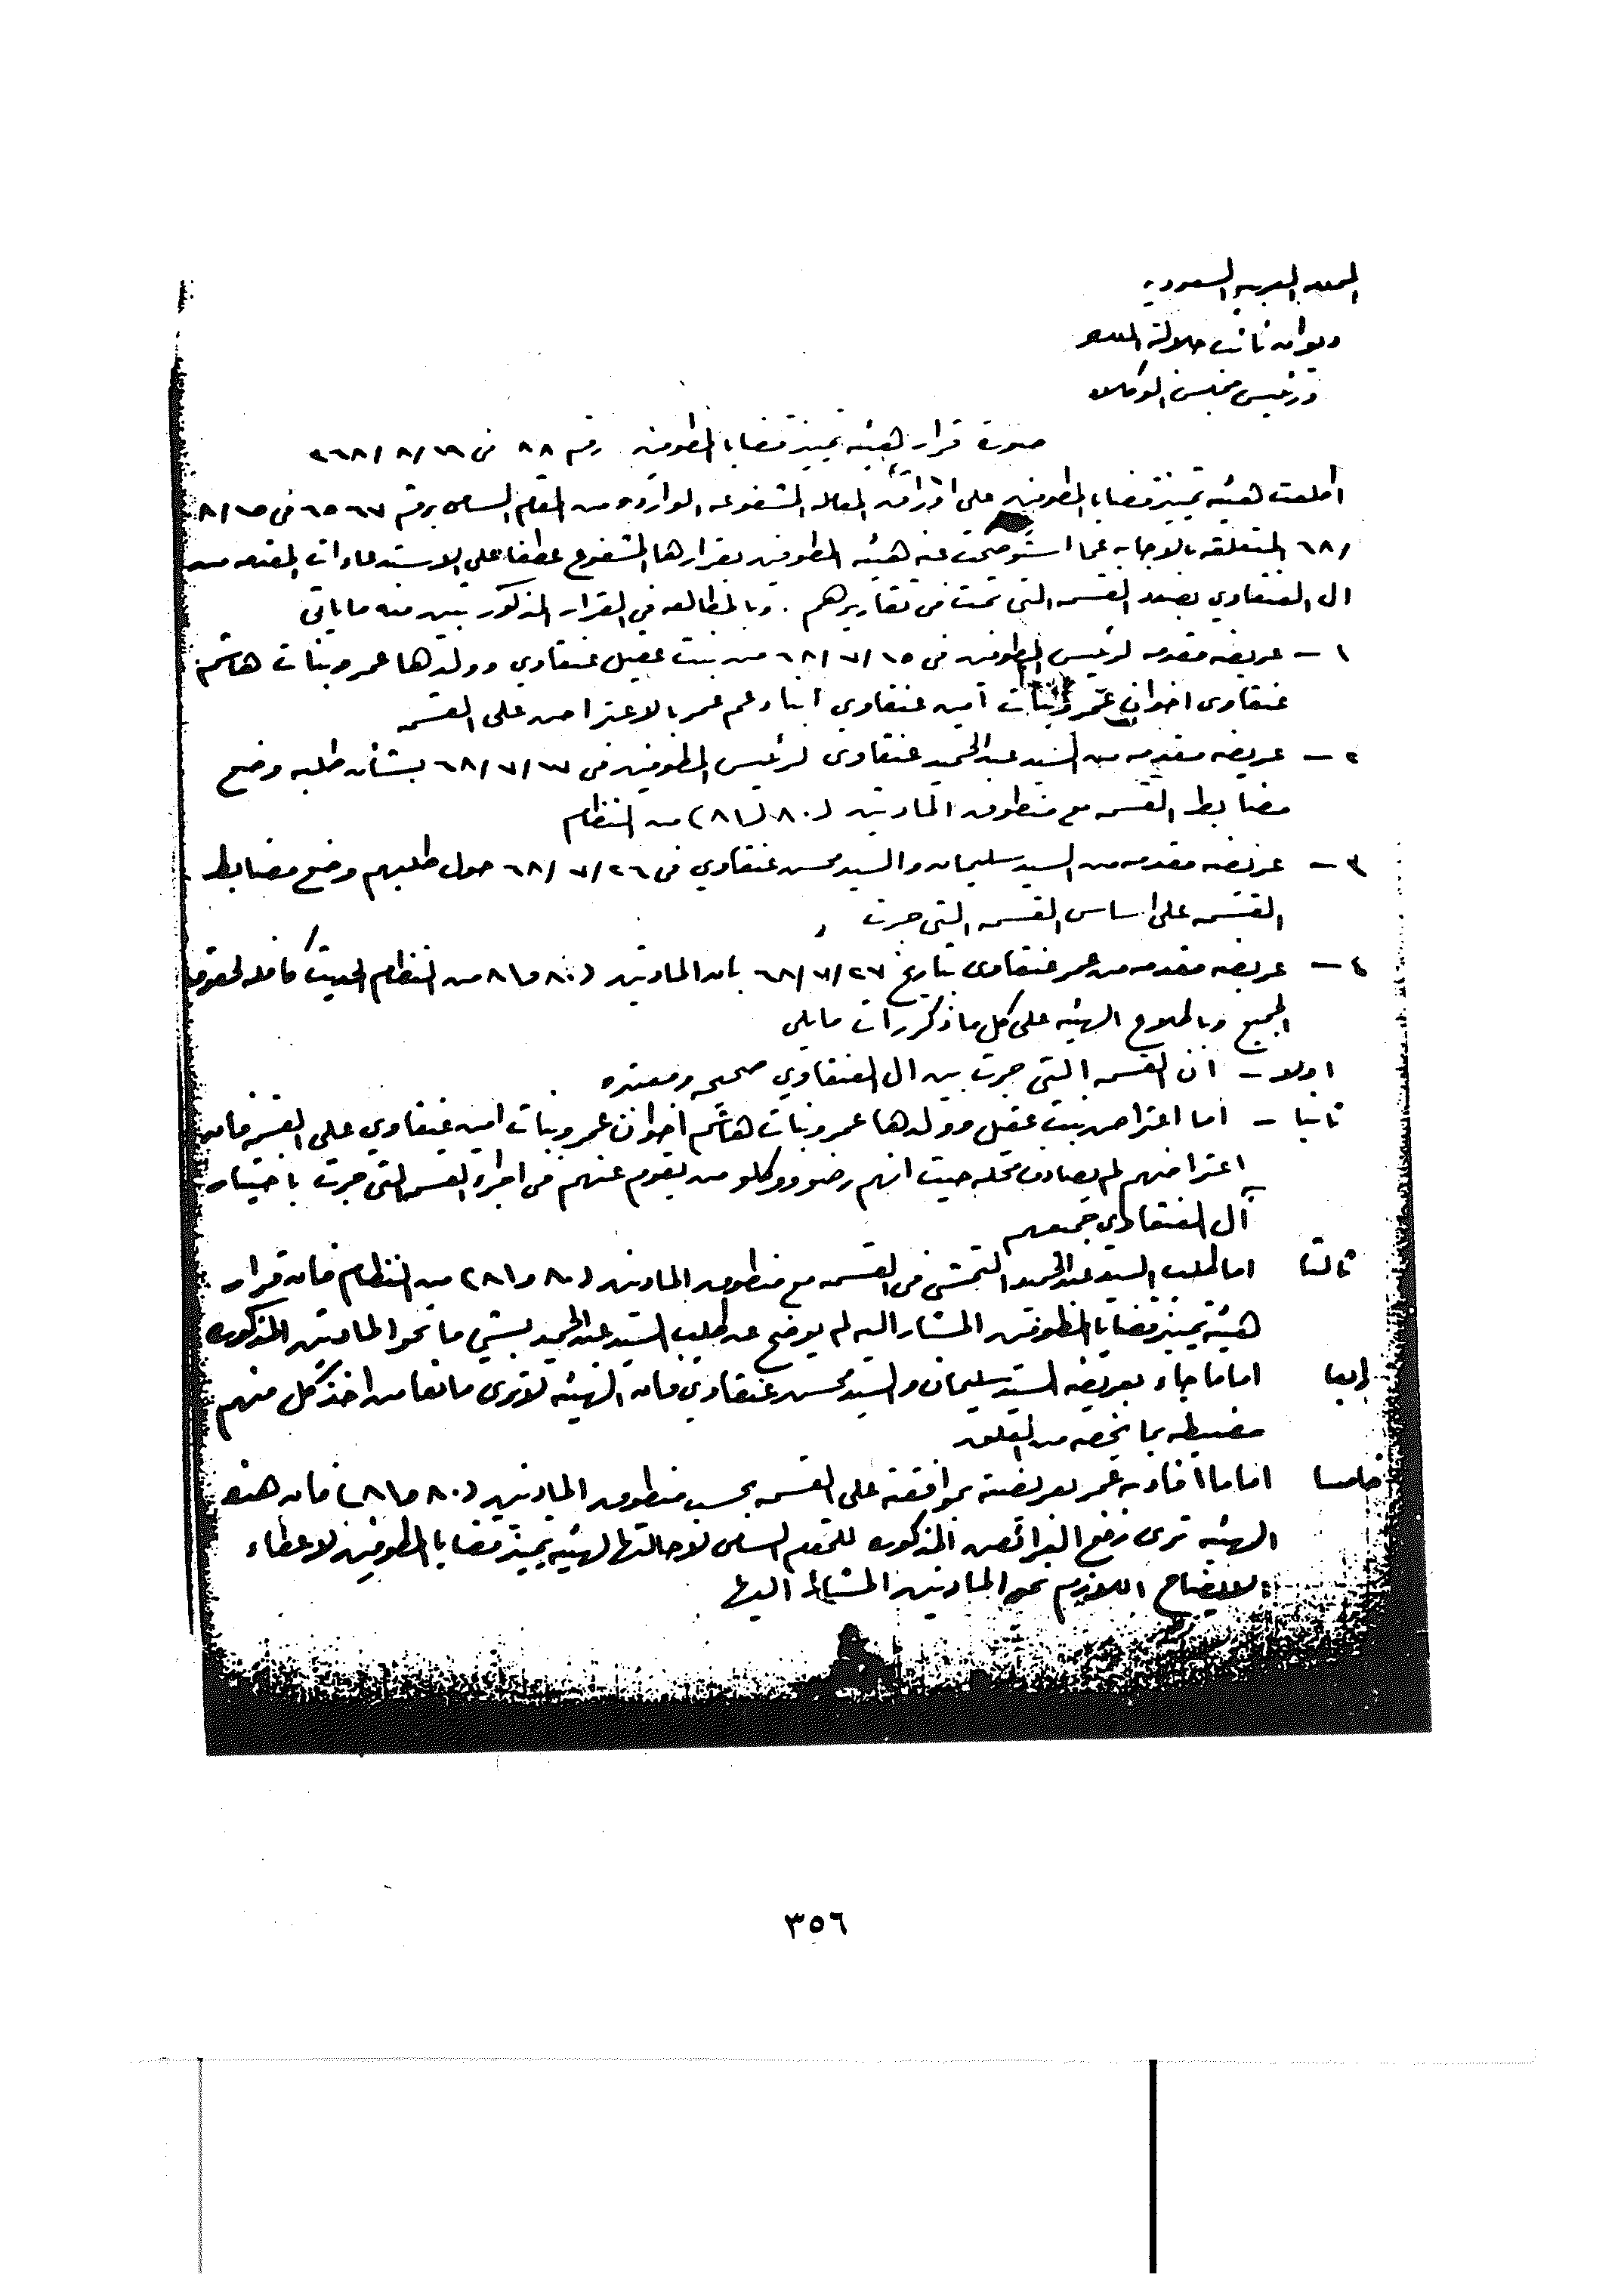 المملكة العربية السعودية
ديوان نائب جلالة الملك
ورئيس مجلس الوكلاء
صورة قرار هيئة تمييز قضايا المطوفين رقم ٨٨ في ١٩ /٨ /٦٨
اطلعت هيئة تمييز قضايا المطوفين على اوراق المعاملة المشفوعه الواردة من المقام السامي برقم ٦٥٦٧ في ١٥ /٨
/٦٨ المتعلقه بالاجابه عما استوضحت عنه هيئة المطوفين بقرارها المشفوع عطفا على الاستدعاءات المقدمه من
ال العنقاوي بصدد القسمه التي تمت في تقاريرهم . وبالمطالعه في القرار المذكور تبين منه ماياتي
١ – عريضه مقدمه لرئيس المطوفين في ١٥ /٧ /٦٨ من بنت عقيل عنقاوي وولدها عمر وبنات هاشم
عنقاوي اخوان عمر وبنات امين عنقاوي ابناء عم عمر بالاعتراض على القسمه
٢ – عريضه مقدمه من السيد عبدالحميد عنقاوي لرئيس المطوفين في /٧ /٦٨ بشأن طلبه وضع
مضابط القسمه مع منطوق المادتين (٨٠ و٨١) من النظام
٣ – عريضه مقدمه من السيد سليمان والسيد محسن عنقاوي في ٢٦ /٧ /٦٨ حول طلبهم وضع مضابط
القسمه على اساس القسمه التي جرت
٤ – عريضه مقدمه من عمر عنقاوي بتاريخ ٢٧ /٧ /٦٨ بان المادتين (٨٠ و٨١ من النظام كافله لحقوق
الجميع وباطلاع الهيئه على كل ماذكر رات مايلي
اولا – ان القسمه التي جرت بين ال العنقاوي صحيحه ومعتبره
ثانيا – اما اعتراض بنت عقيل وولدها عمر وبنات هاشم اخوان عمر وبنات امين عنقاوي على القسمه فان
اعتراضهم لم يصادف محله حيث انهم رضو ووكلو من يقوم عنهم في اجراء القسمه التي جرت باختيار
آل العنقاوي جميعهم
ثالثا اما طلب السيد عبدالحميد التمشي في القسمه مع منطوق المادتين (٨٠ و٨١) من النظام فان قرار
هيئة تمييز قضايا المطوفين المشار اليه لم يوضح عن طلب السيد عبدالحميد بشي ما نحو المادتين المذكوره
رابعا اما ماجاء بعريضه السيد سليمان والسيد محسن عنقاوي فان الهيئه لاترى مانعا من اخذ كل منهم
مضبطه بما يخصه من
خامسا اما ما افاد به عمر بعريضته بموافقته على القسمه بحسب منطوق المادتين (٨٠ و٨١) فان هذه
الهيئه ترى رفع العرائض المذكوره للمقام السامي لاحالتها لهيئة تمييز قضايا المطوفين لاعطاء
الايضاح اللازم نحو المادتين المشار اليها
٣٥٦